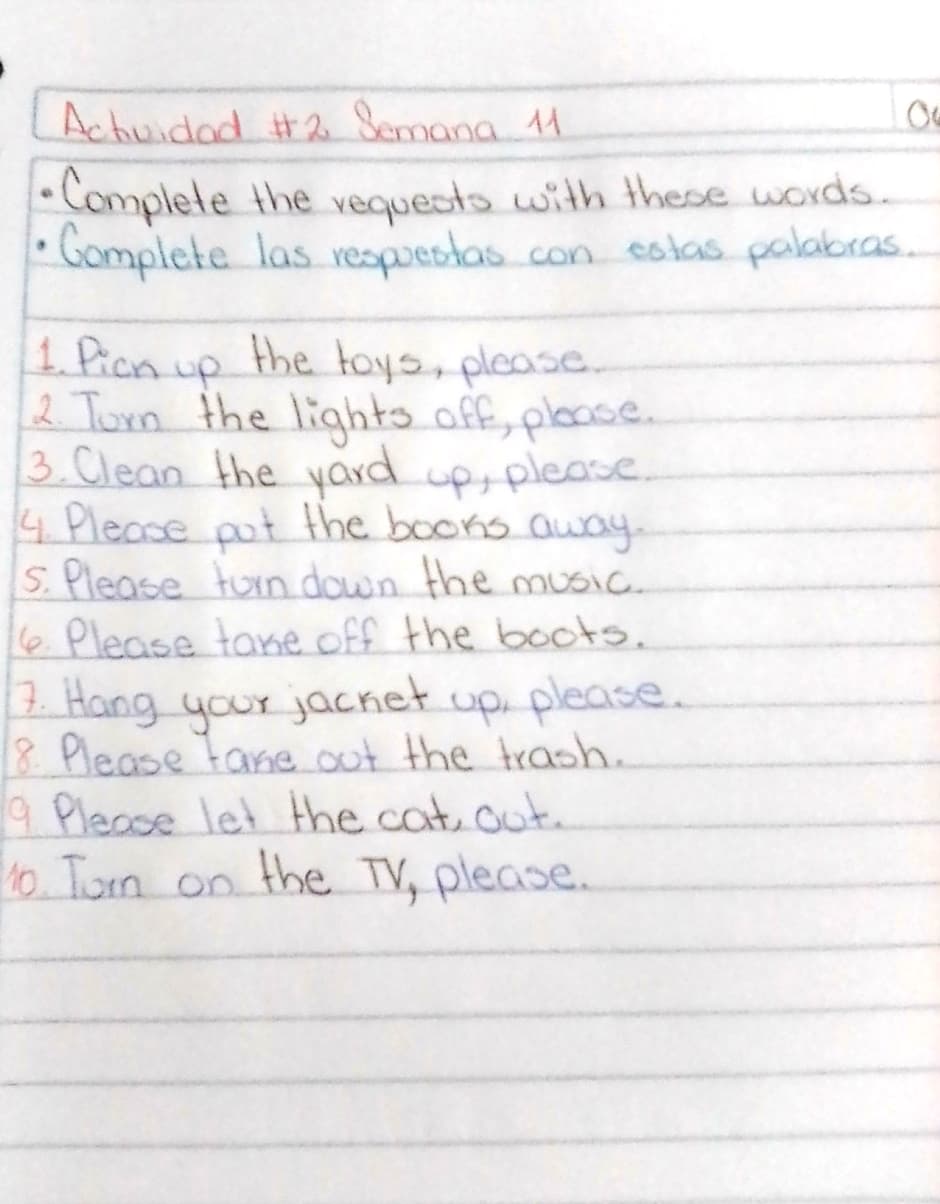 Actividad #2 Semana 11
• Complete the requests with these words.
• Complete las respuestas con estas palabras.
1. Pick up the toys, please.
2. Turn the lights off, please.
3. Clean the yard up, please.
4. Please put the books away.
5. Please turn down the music.
6. Please take off the boots.
7. Hang your jacket up, please.
8. Please take out the trash.
9 Please let the cat, out.
10. Turn on the TV, please.